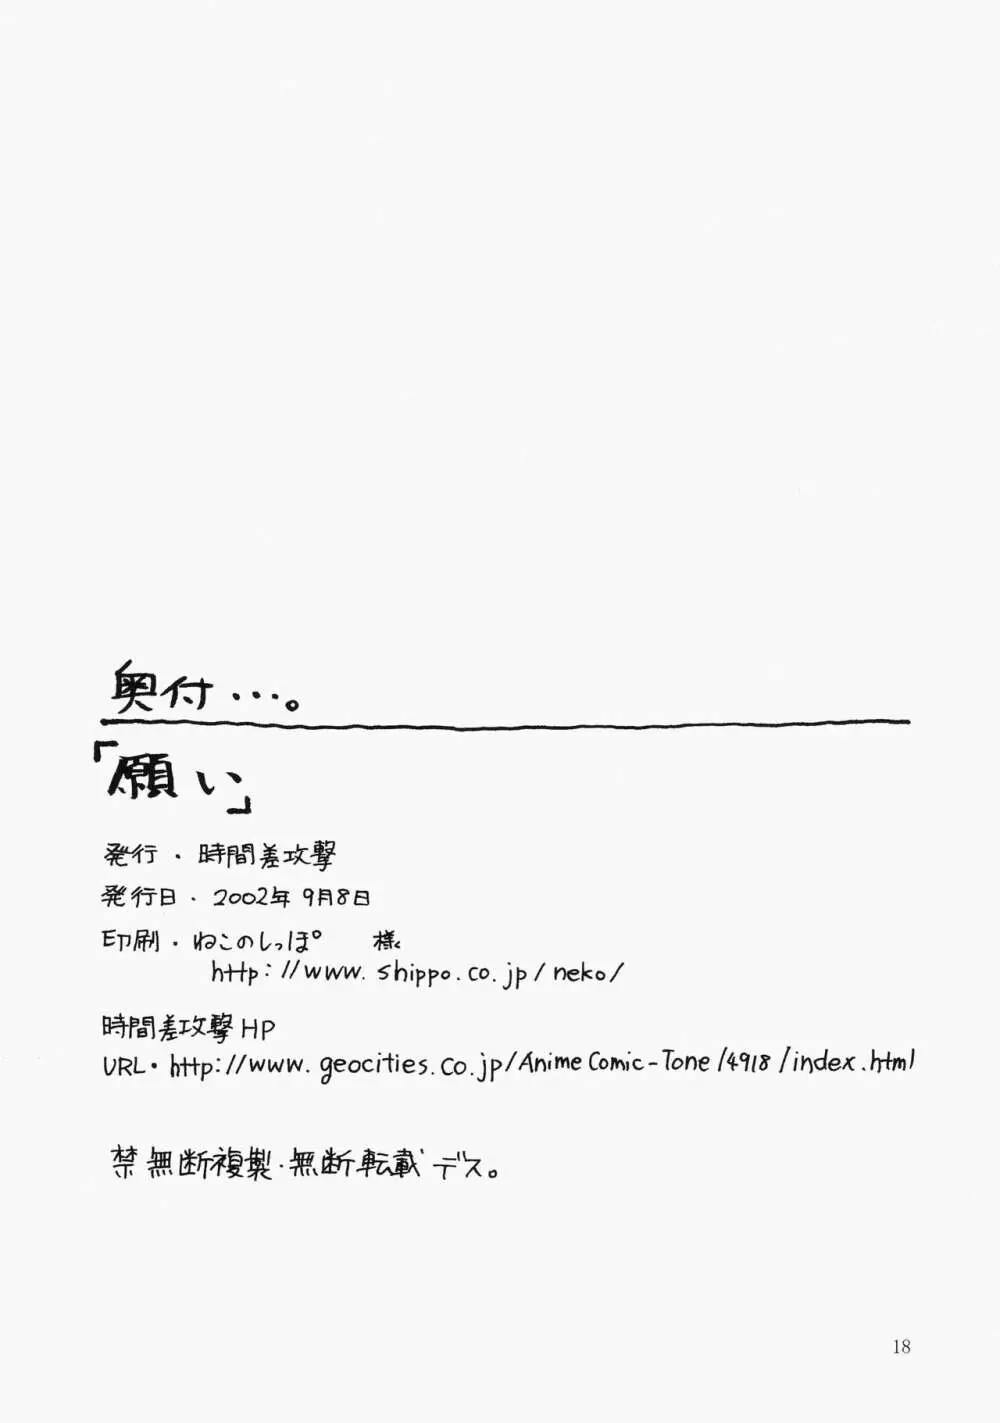 奥付・・・。
「願い」
発行・時間差攻撃
発行日・2002年9月8日
印刷・ねこのしっぽ 様
http://www.shippo.co.jp/neko/
時間差攻撃HP
URL・http://www.geocities.co.jp/AnimeComic-Tone/4918/index.html
禁無断複製・無断転載デス。
18